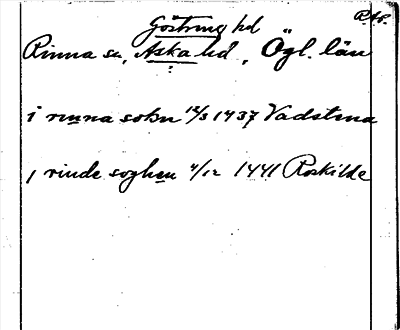 R.A.P.
Göstring hd
Rinna sn, Aska hd, Ögl. län
i rinna sokn 12/3 1437 Vadstena
i rinde soghen 4/12 1441 Roskilde